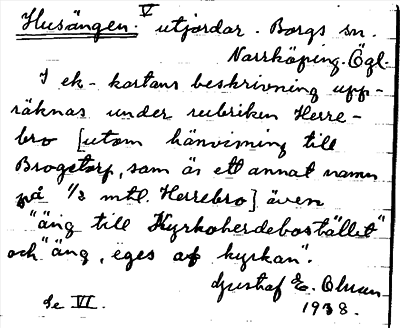 Husängen. V utjordar. Borgs sn.
Norrköping. Ögl.
I ek-kartans beskrivning upp-
räknas under rubriken Herre-
bro [utom hänvisning till
Brogetorp, som är ett annat namn
på 1/3 mtl. Herrebro] även
"äng till Kyrkoherdebostället"
och "äng, eges af kyrkan".
Gustaf E. Olsson
1938.
Se VI.